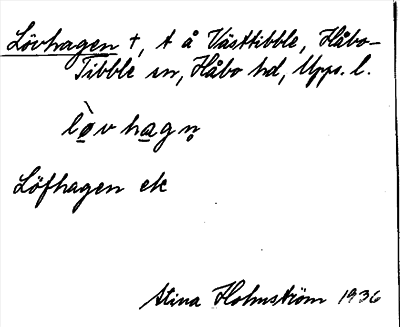 Lövhagen +, t å Västtibble, Håbo-
Tibble sn, Håbo hd, Upps. l.
lø̀vhagn̥
Löfhagen ek
Stina Holmström 1936